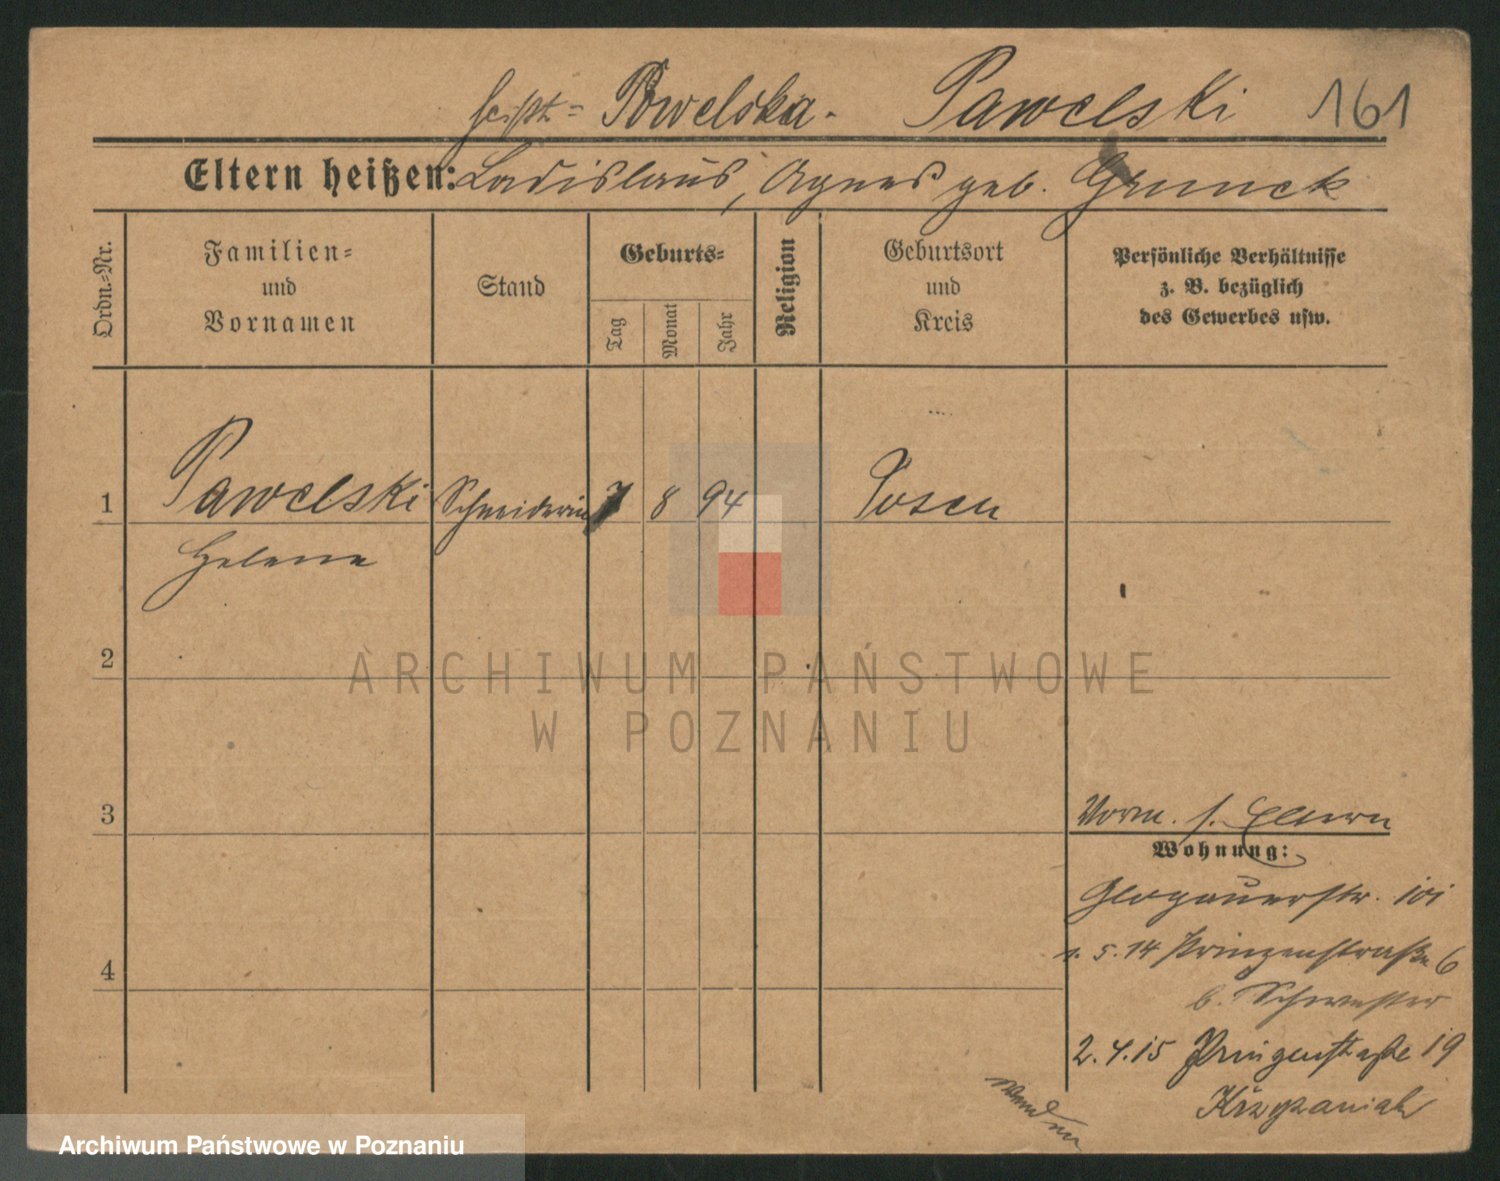 heißt = Pawelska. Pawelski 161
Eltern heißen: Ladislaus, Agnes geb. Grunek
Ordn.-Nr.
Familien-
und
Vornamen
Stand
Geburts-
Tag
Monat
Jahr
Religion
Geburtsort
und
Kreis
Persönliche Verhältnisse
z. B. bezüglich
des Gewerbes usw.
1 Pawelski Schneiderin 7 8 94 Posen
Helene
2
ARCHIWUM PAŃSTWOWE
W POZNANIU
3
Vorm. s. Eltern
Wohnung:
Glogauerstr. 101
1. 5. 14 Prinzenstraße 6
b. Schwester
4
2. 4. 15 Prinzenstraße 19
Wenden
Archiwum Państwowe w Poznaniu